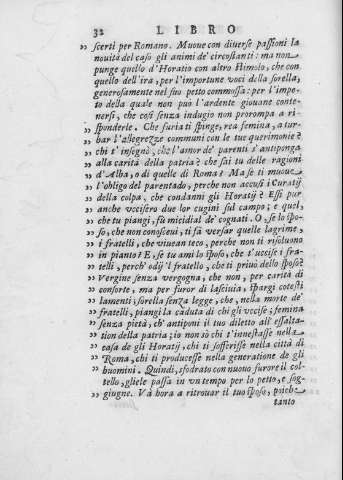 32 LIBRO
„ scerti per Romano. Muove con diverse passioni la
„ novità del caso gli animi de' circostanti: ma non
„ punge quello d'Horatio con altro stimolo, che con
„ quello dell'ira, per l'importune voci della sorella,
„ generosamente nel suo petto commossa: per l'impe-
„ to della quale non può l'ardente giouane conte-
„ nersi, che così senza indugio non prorompa a ri-
„ sponderle. Che furia ti spinge, rea femina, a tur-
„ bar l'allegrezza communi con le tue querimonie?
„ chi t'insegnò, che l'amor de' parenti s'antiponga
„ alla carità della patria? che fai tu delle ragioni
„ d'Alba, o di quelle di Roma? Ma se ti muove
„ l'obligo del parentado, perche non accusi i Curatij
„ della colpa, che condanni gli Horatij? Essi pur
„ anche uccisero due lor cugini sul campo; e quel,
„ che tu piangi, fù micidial de' cognati. O, se lo spo-
„ so, che non conoscevi, ti fà versar quelle lagrime,
„ i fratelli, che viuean teco, perche non ti risoluono
„ in pianto? E, se tu ami lo sposo, che t'uccise i fra-
„ telli, perch' odij 'l fratello, che ti priuò dello sposo?
„ Vergine senza vergogna, che non, per carità di
„ conforte, ma per furor di lasciuia, spargi cotesti
„ lamenti; sorella senza legge, che, nella morte de'
„ fratelli, piangi la caduta di chi gli uccise; femina
„ senza pietà, ch' antiponi il tuo diletto all' essalta-
„ tion della patria; io non sò chi t'innestasse nella
„ casa de gli Horatij, chi ti sofferisse nella città di
„ Roma, chi ti producesse nella generatione de gli
„ huomini. Quindi, sfodrato con nuouo furore il col-
„ tello, gliele passa in un tempo per lo petto, e sog-
„ giugne. Và hora a ritrouar il tuo sposo, poiche
tanto